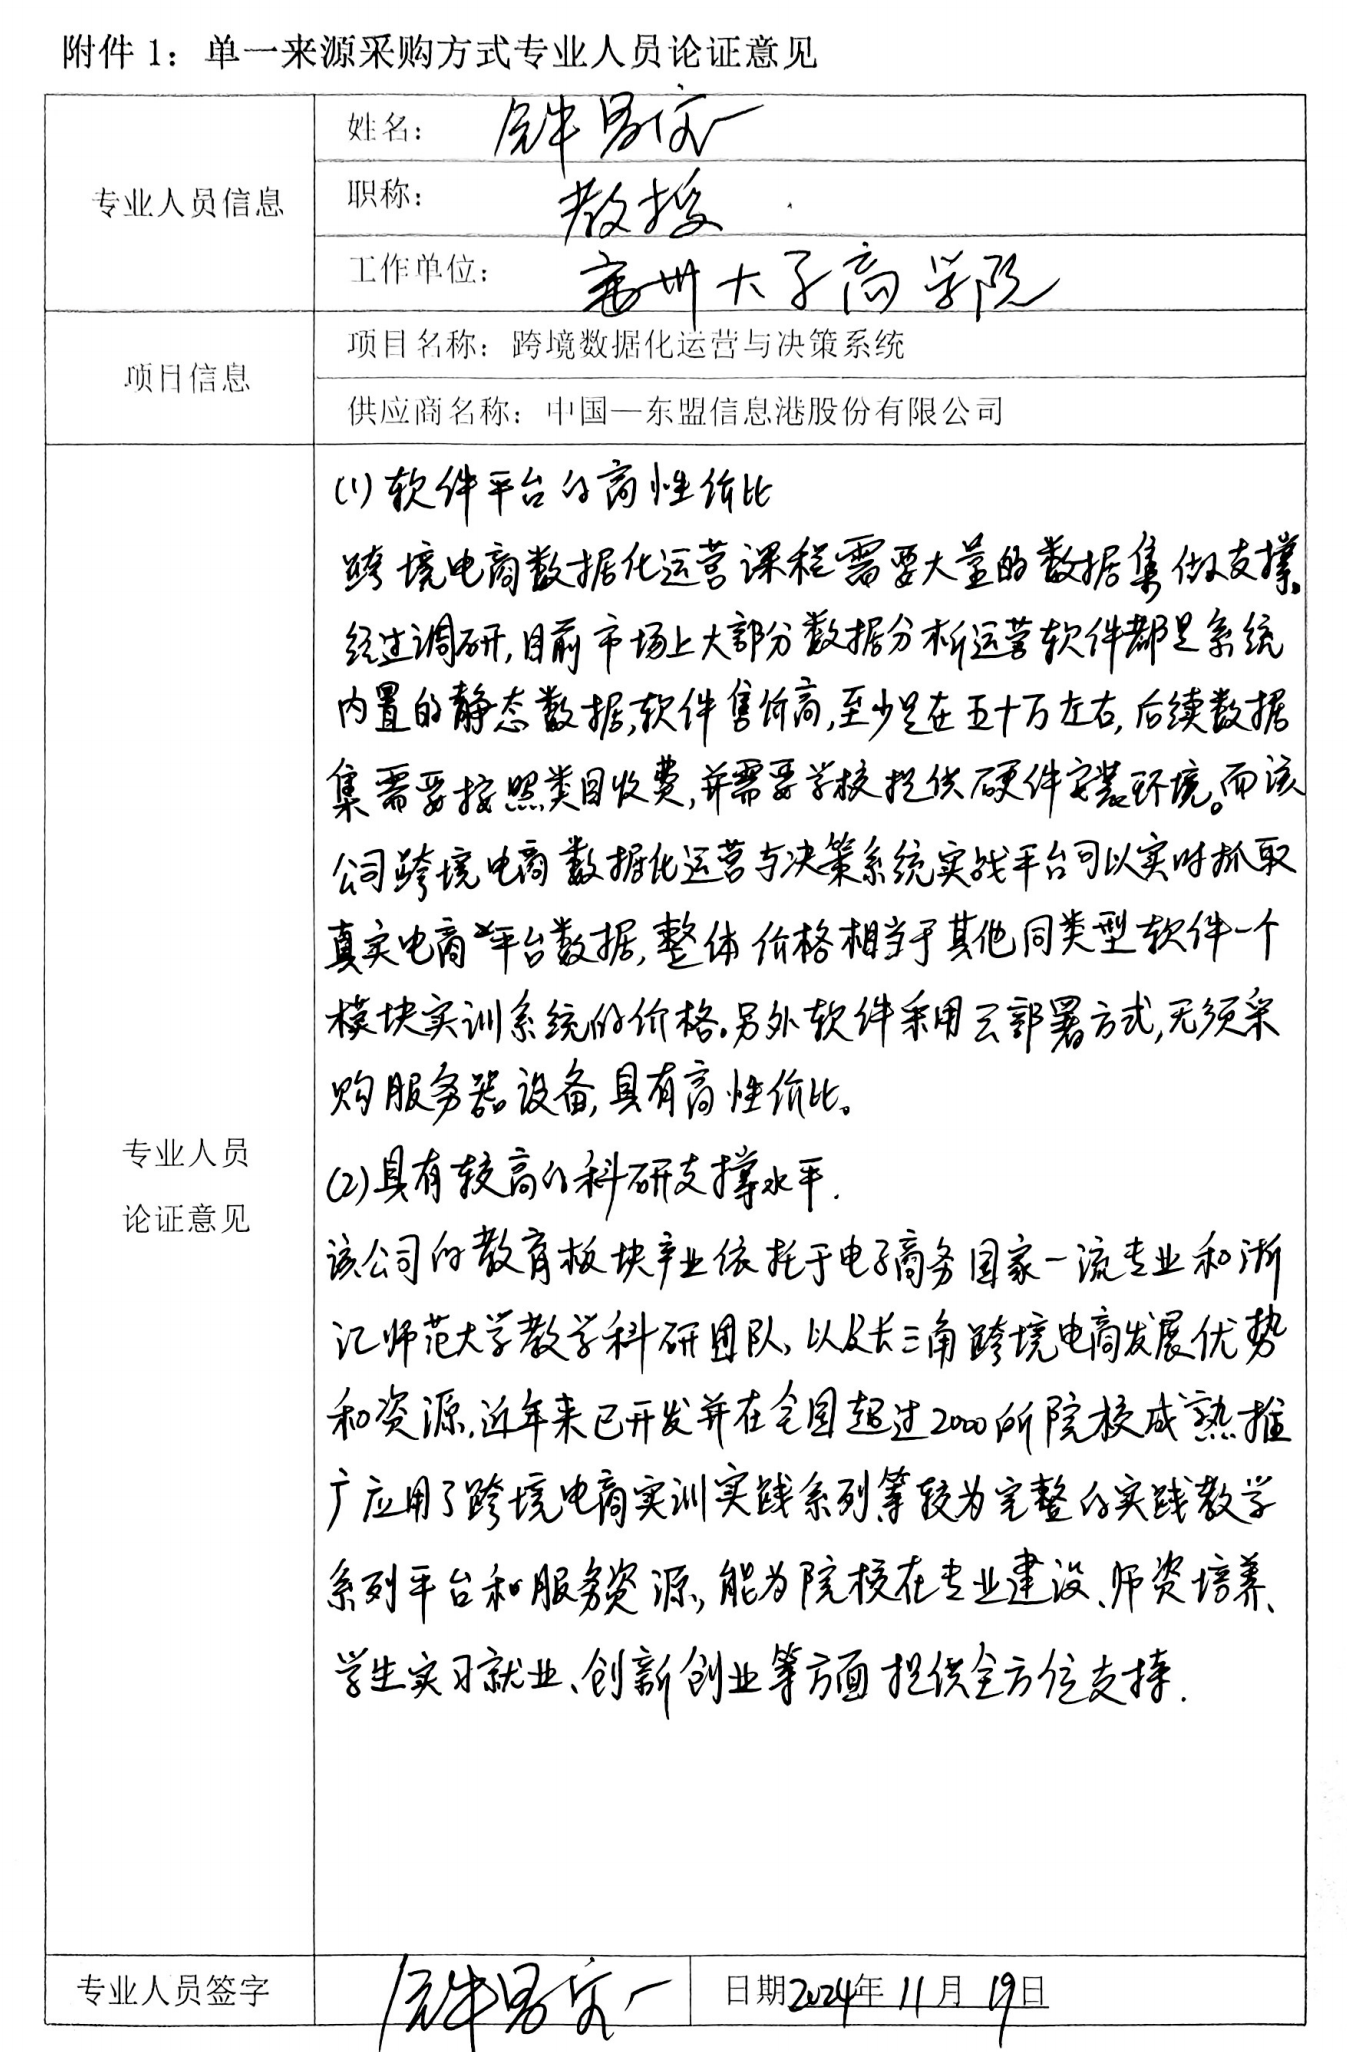 附件 1：单一来源采购方式专业人员论证意见
专业人员信息
姓名：
职称：
教授
工作单位：
大学商学院
项目信息
项目名称：跨境数据化运营与决策系统
供应商名称：中国—东盟信息港股份有限公司
专业人员
论证意见
(1)软件平台的高性价比
跨境电商数据化运营课程需要大量的数据集做支撑。
经过调研,目前市场上大部分数据分析运营软件都是系统
内置的静态数据,软件售价高,至少是在五十万左右,后续数据
集需要按照类目收费,并需要学校提供硬件安装环境。而该
公司跨境电商数据化运营与决策系统实战平台可以实时抓取
真实电商平台数据,整体价格相当于其他同类型软件一个
模块实训系统的价格。另外软件采用云部署方式,无须采
购服务器设备,具有高性价比。
(2)具有较高的科研支撑水平.
该公司的教育板块产业依托于电子商务国家一流专业和浙
江师范大学教学科研团队、以及长三角跨境电商发展优势
和资源,近年来已开发并在全国超过2000所院校成熟推
广应用了跨境电商实训实践系列等较为完整的实践教学
系列平台和服务资源,能为院校在专业建设、师资培养、
学生实习就业、创新创业等方面提供全方位支持.
专业人员签字
日期2024年 11月 19日